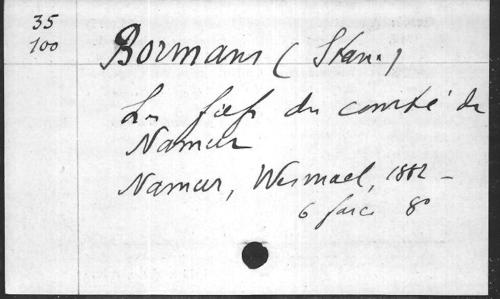 35
100
Bormans (Stan.)
Les fiefs du comté de
Namur
Namur, Wesmael, 1882 -
6 fasc 8°